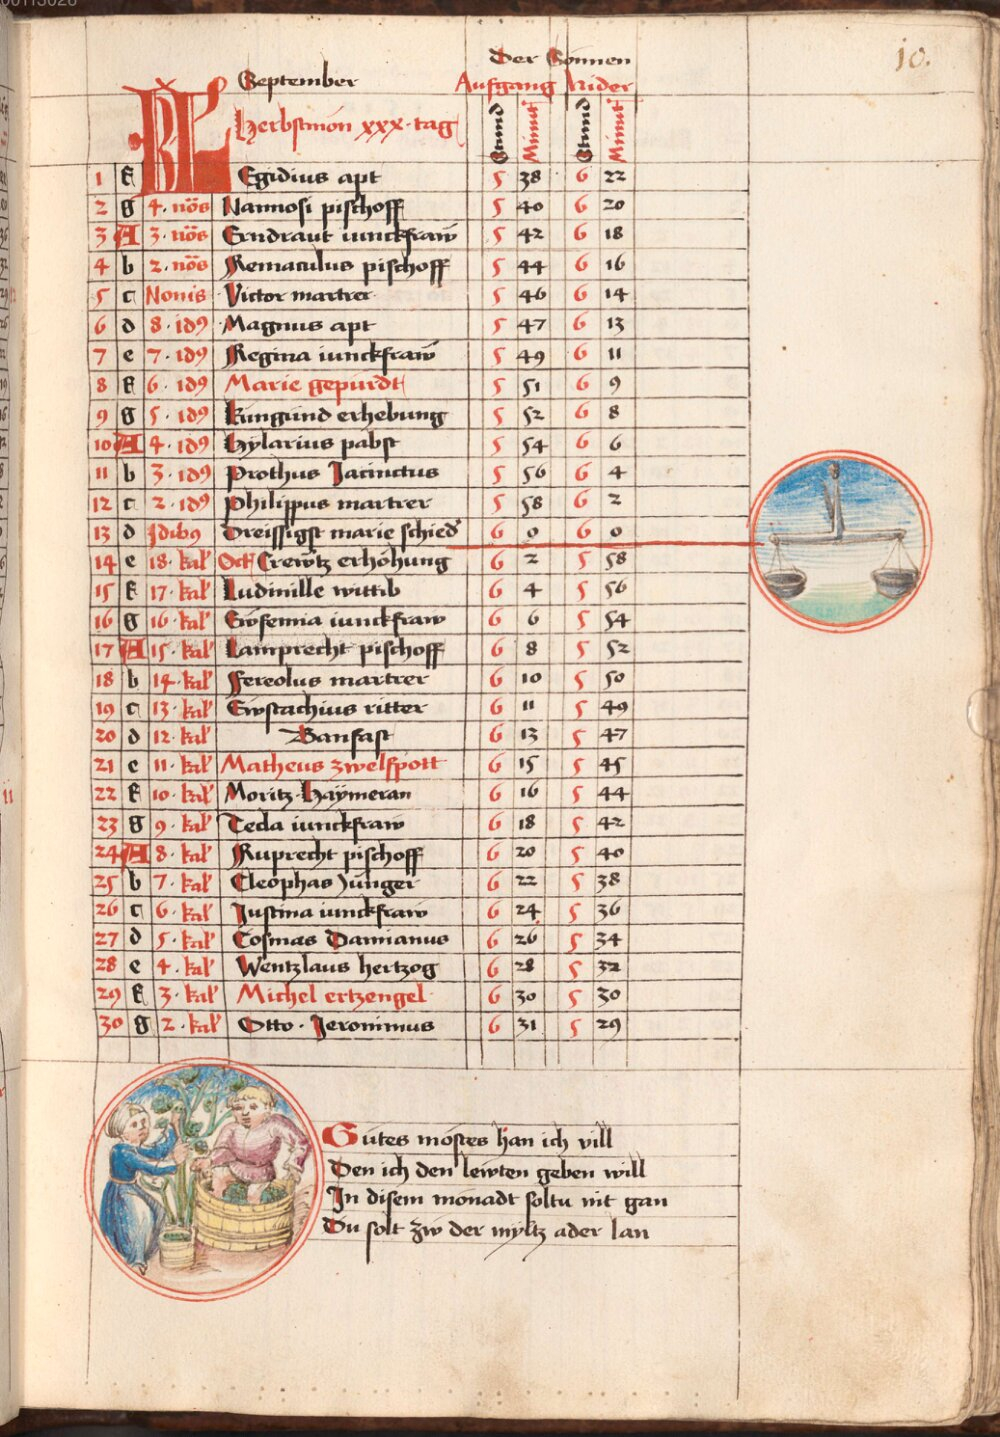 10.
Der Sonnen
September
Aufgang Nider
KL Herbstmon xxx tag
Stund Minut Stund Minut
1 f Egidius apt 5 38 6 22
2 g 4 · nōs Nannosi pischoff 5 40 6 20
3 A 3 · nōs Erndraut iunckfraw 5 42 6 18
4 b 2 · nōs Remaculus pischoff 5 44 6 16
5 c Nonis Victor martrer 5 46 6 14
6 d 8 · id9 Magnus apt 5 47 6 13
7 e 7 · id9 Regina iunckfraw 5 49 6 11
8 f 6 · id9 Marie gepurdt 5 51 6 9
9 g 5 · id9 Kungund erhebung 5 52 6 8
10 A 4 · id9 Hylarius pabst 5 54 6 6
11 b 3 · id9 Prothus Jacinctus 5 56 6 4
12 c 2 · id9 Philippus martrer 5 58 6 2
13 d Idib9 Dreissigst marie schied 6 0 6 0
14 e 18 · kal' Crewtz erhohung 6 2 5 58
15 f 17 · kal' Ludmille wittib 6 4 5 56
16 g 16 · kal' Ewfemia iunckfraw 6 6 5 54
17 A 15 · kal' Lamprecht pischoff 6 8 5 52
18 b 14 · kal' Fereolus martrer 6 10 5 50
19 c 13 · kal' Ewstachius ritter 6 11 5 49
20 d 12 · kal' Banfast 6 13 5 47
21 e 11 · kal' Matheus zwelfpott 6 15 5 45
22 f 10 · kal' Moritz · Haymeran 6 16 5 44
23 g 9 · kal' Tecla iunckfraw 6 18 5 42
24 A 8 · kal' Ruprecht pischoff 6 20 5 40
25 b 7 · kal' Cleophas Junger 6 22 5 38
26 c 6 · kal' Justina iunckfraw 6 24 5 36
27 d 5 · kal' Cosmas Damianus 6 26 5 34
28 e 4 · kal' Wentzlaus hertzog 6 28 5 32
29 f 3 · kal' Michel ertzengel 6 30 5 30
30 g 2 · kal' Otto · Jeronimus 6 31 5 29
Gutes mostes han ich vill
Den ich den lewten geben will
In disem monadt soltu nit gan
Du solt zw der myltz ader lan